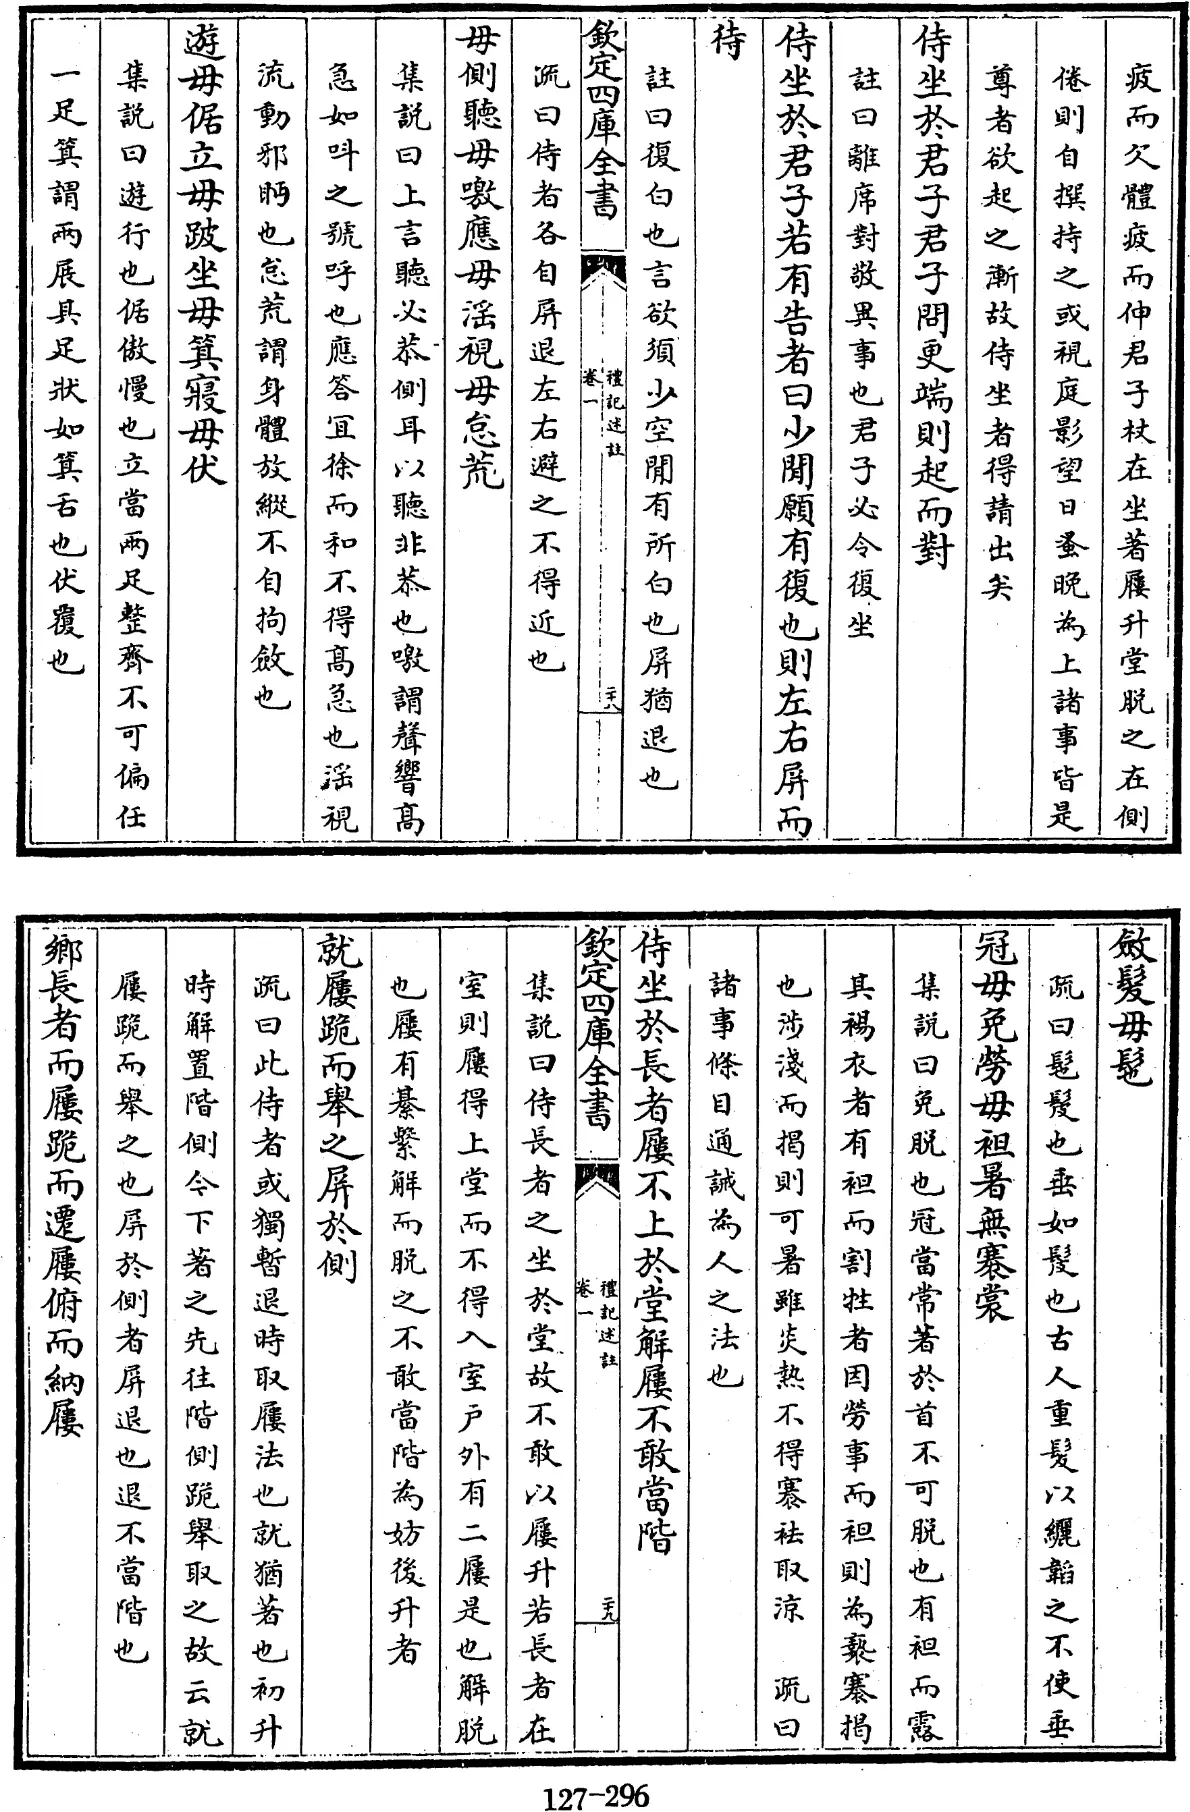 疲而欠體疲而伸君子杖在坐著屨升堂脱之在側
倦則自撰持之或視庭影望日蚤晚為上諸事皆是
尊者欲起之漸故侍坐者得請出矣
侍坐於君子君子問更端則起而對
註曰離席對敬異事也君子必令復坐
侍坐於君子若有告者曰少閒願有復也則左右屏而
待
註曰復白也言欲須少空閒有所白也屏猶退也
欽定四庫全書
禮記述註
卷一
二十八
疏曰侍者各自屏退左右避之不得近也
毋側聽毋噭應毋淫視毋怠荒
集説曰上言聽必恭側耳以聽非恭也噭謂聲響高
急如叫之號呼也應答宜徐而和不得高急也淫視
流動邪眄也怠荒謂身體放縱不自拘斂也
遊毋倨立毋跛坐毋箕寢毋伏
集説曰遊行也倨傲慢也立當兩足整齊不可偏任
一足箕謂兩展其足狀如箕舌也伏覆也
斂髮毋髢
疏曰髢髲也垂如髲也古人重髮以纚韜之不使垂
冠毋免勞毋袒暑無褰裳
集説曰免脱也冠當常著於首不可脱也有袒而露
其裼衣者有袒而割牲者因勞事而袒則為褻褰揭
也涉淺而揭則可暑雖炎熱不得褰袪取涼 疏曰
諸事條目通誡為人之法也
侍坐於長者屨不上於堂解屨不敢當階
欽定四庫全書
禮記述註
卷一
二十九
集説曰侍長者之坐於堂故不敢以屨升若長者在
室則屨得上堂而不得入室户外有二屨是也解脱
也屨有綦繫解而脱之不敢當階為妨後升者
就屨跪而舉之屏於側
疏曰此侍者或獨暫退時取屨法也就猶著也初升
時解置階側今下著之先往階側跪舉取之故云就
屨跪而舉之也屏於側者屏退也退不當階也
鄉長者而屨跪而遷屨俯而納屨
127-296